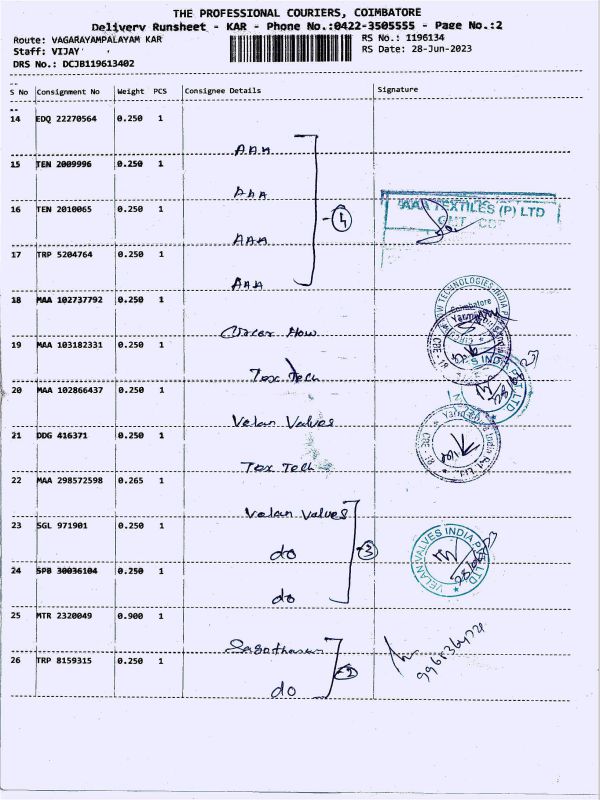 THE PROFESSIONAL COURIERS, COIMBATORE
Delivery Runsheet - KAR - Phone No.:0422-3505555 - Page No.:2
Route: VAGARAYAMPALAYAM KAR RS No.: 1196134
Staff: VIJAY RS Date: 28-Jun-2023
DRS No.: DCJB119613402
S No Consignment No Weight PCS Consignee Details Signature
14 EDQ 22270564 0.250 1
AAA
15 TEN 2009996 0.250 1
AAA
AAA TEXTILES (P) LTD
16 TEN 2010065 0.250 1
4
AAA
17 TRP 5204764 0.250 1
AAA
18 MAA 102737792 0.250 1
TECHNOLOGIES INDIA
Coimbatore
19 MAA 103182331 0.250 1
Tex Tech
20 MAA 102866437 0.250 1
Velan Valves
21 DDG 416371 0.250 1
Tex Tech
22 MAA 298572598 0.265 1
Velan Valves
23 SGL 971901 0.250 1
do
3
VELAN VALVES INDIA PVT LTD
24 SPB 30036104 0.250 1
do
25 MTR 2320049 0.900 1
26 TRP 8159315 0.250 1
2
do